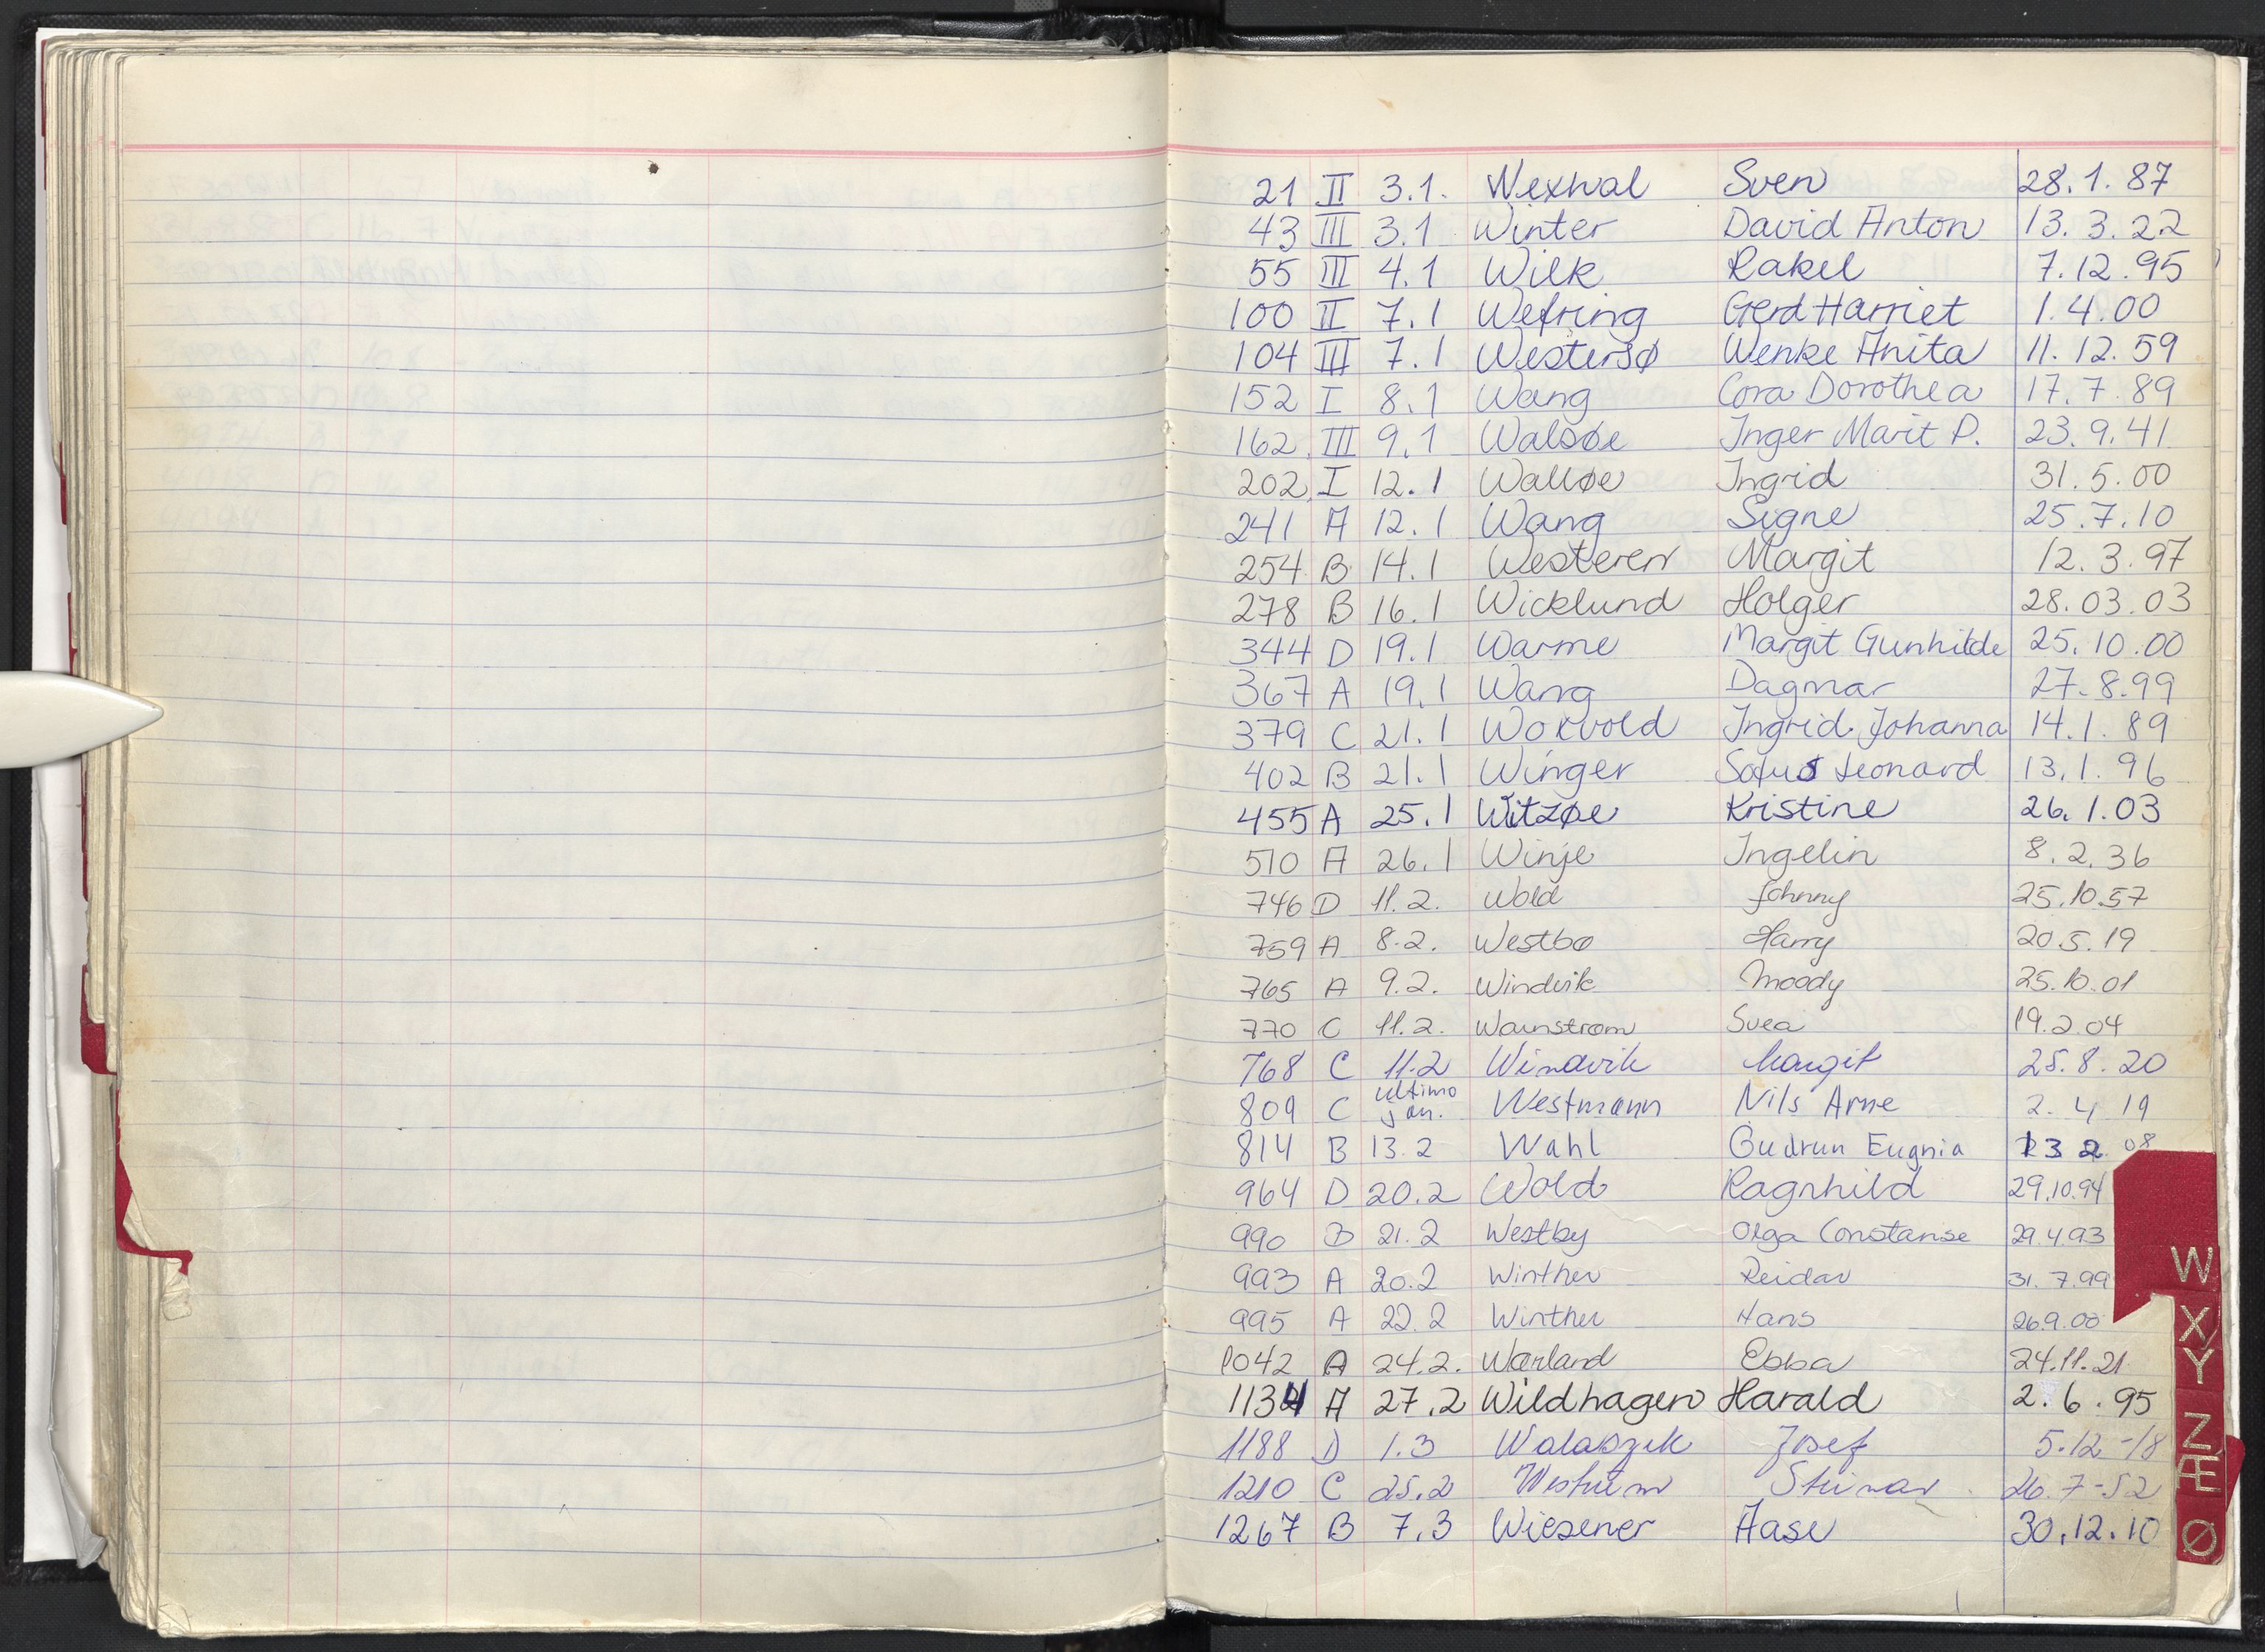 21 II 3.1. Wexhal Sven 28.1.87
43 III 3.1 Winter David Anton 13.3.22
55 III 4.1 Wilk Rakel 7.12.95
100 II 7.1 Wefring Gerd Harriet 1.4.00
104 III 7.1 Westersø Wenke Anita 11.12.59
152 I 8.1 Wang Cora Dorothea 17.7.89
162 III 9.1 Walsøe Inger Marit P. 23.9.41
202 I 12.1 Walløe Ingrid 31.5.00
241 A 12.1 Wang Signe 25.7.10
254 B 14.1 Westeren Margit 12.3.97
278 B 16.1 Wicklund Holger 28.03.03
344 D 19.1 Warme Margit Gunhilde 25.10.00
367 A 19.1 Wang Dagmar 27.8.99
379 C 21.1 Wokvold Ingrid Johanna 14.1.89
402 B 21.1 Winger Sofus Leonard 13.1.96
455 A 25.1 Witzøe Kristine 26.1.03
510 A 26.1 Winje Ingelin 8.2.36
746 D 11.2. Wold Johnny 25.10.57
759 A 8.2. Westbø Harry 20.5.19
765 A 9.2. Windvik Moody 25.10.01
770 C 11.2. Warnstrøm Svea 19.2.04
768 C 11.2 Windvik Margit 25.8.20
809 C ultimo jan. Westmann Nils Arne 2.4 19
814 B 13.2 Wahl Gudrun Eugnia 13 2 08
964 D 20.2 Wold Ragnhild 29.10.94
990 B 21.2 Westby Olga Constanse 29.4.93
993 A 20.2 Winther Reidar 31.7.99
995 A 22.2 Winther Hans 26.9.00
1042 A 24.2. Wærland Ebba 24.11.21
1134 A 27.2 Wildhagen Harald 2.6.95
1188 D 1.3 Walaszek Josef 5.12-18
1210 C 25.2 Westrem Steinar 26.7-52
1267 B 7.3 Wiesener Aase 30.12.10
W
X
Y
Z
Æ
Ø